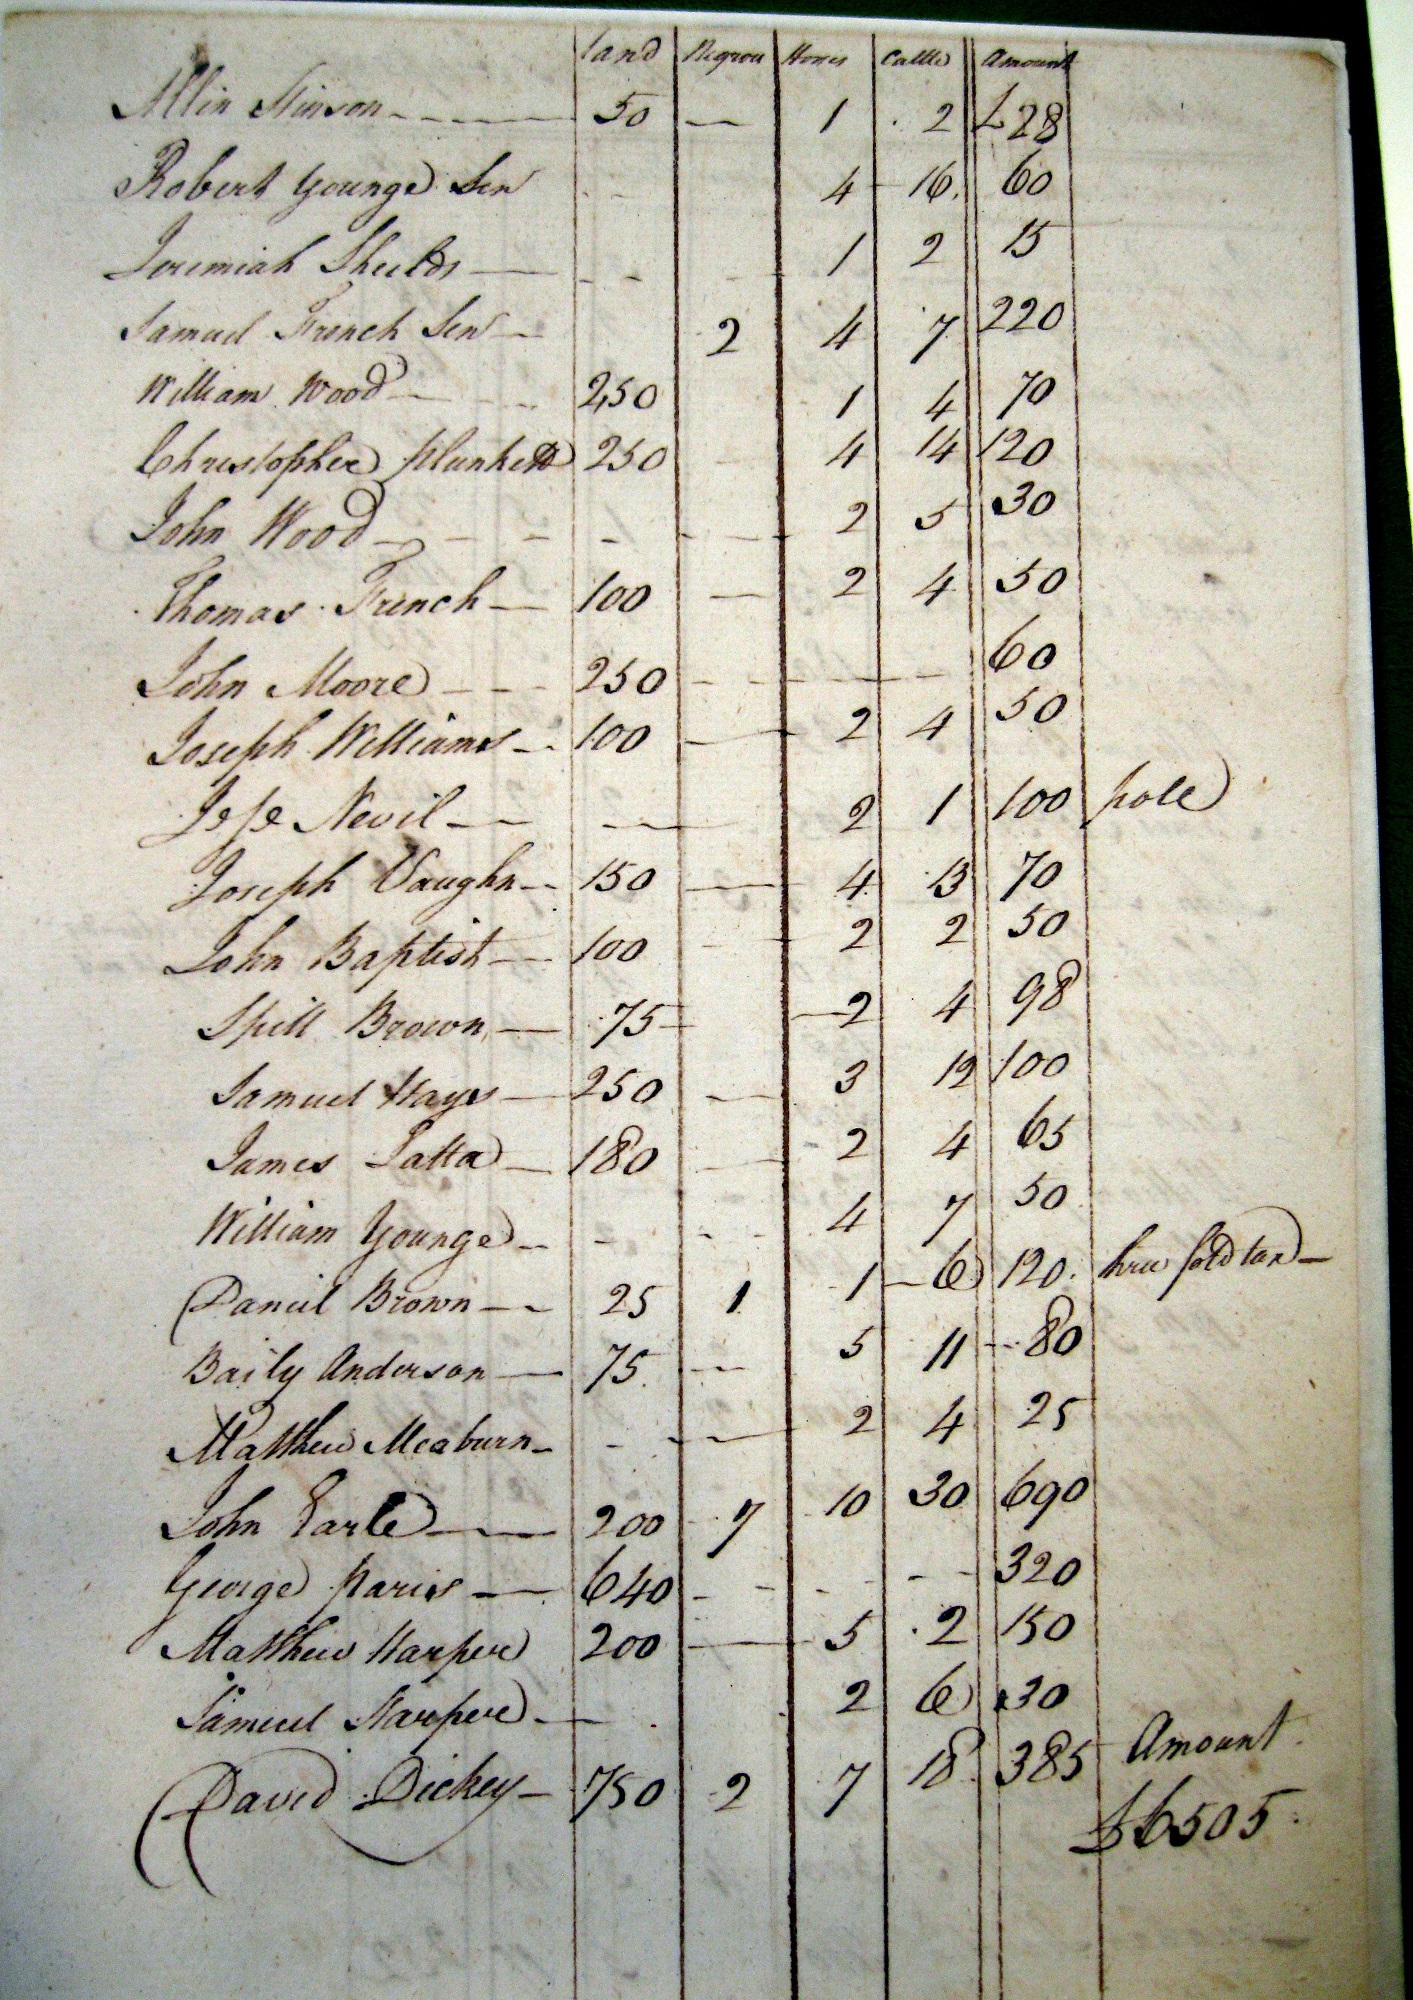 land Negroes Horses Cattle Amount
Allin Hinson 50 — 1 2 £28
Robert Younge Senr - - 4 16 60
Jeremiah Sheilds - - 1 2 15
Samuel French Senr 2 4 7 220
William Wood 250 1 4 70
Christopher Plunkett 250 - 4 14 120
John Wood - - - 2 5 30
Thomas French 100 — 2 4 50
John Moore 250 - - - - 60
Joseph Williams 100 — 2 4 50
Jesse Nevil — 2 1 100 pole
Joseph Vaughn 150 — 4 13 70
John Baptist 100 - 2 2 50
Spill Brown 75 — 2 4 98
Samuel Hays 250 — 3 12 100
James Latta 180 — 2 4 65
William Younge - - - 4 7 50
Daniel Brown 25 1 1 6 120
Baily Anderson 75 — 5 11 80
Matthew Meaburn - — 2 4 25
John Earle 200 7 10 30 690
George Paris 640 - - - - - 320
Matthew Harper 200 — 5 2 150
Samuel Harpere — 2 6 30
David Dickey 750 2 7 18 385 Amount
£6505